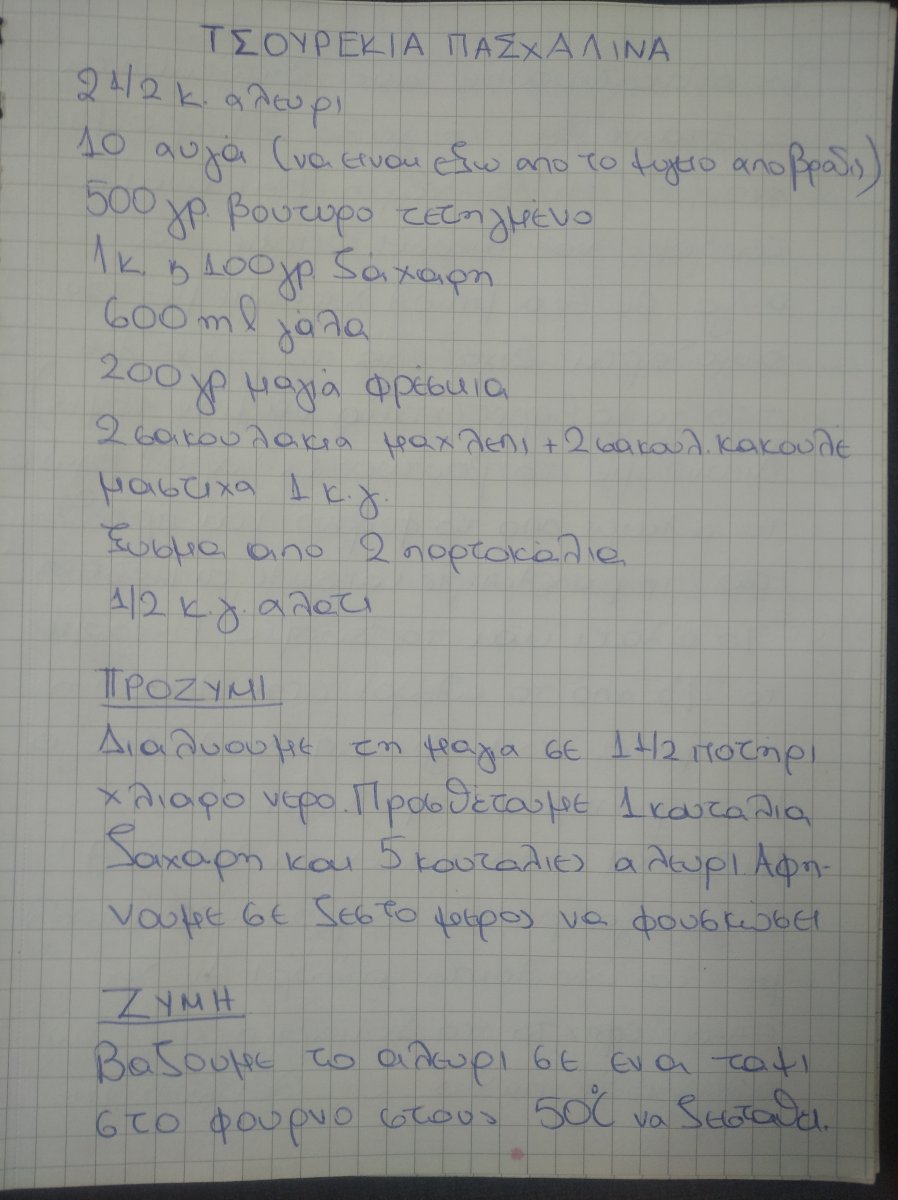 ΤΣΟΥΡΕΚΙΑ ΠΑΣΧΑΛΙΝΑ
2 1/2 κ. αλευρι
10 αυγά (να ειναι εξω απο το ψυγειο αποβραδις)
500 γρ. βουτυρο τετηγμένο
1κ. η 100γρ ζάχαρη
600 ml γάλα
200γρ μαγιά φρέσκια
2 σακουλακια μαχλεπι + 2 σακουλ. κακουλέ
μαστιχα 1 κ.γ.
ξυσμα απο 2 πορτοκάλια
1/2 κ.γ. αλατι
ΠΡΟΖΥΜΙ
Διαλυουμε τη μαγια σε 1 1/2 ποτηρι
χλιαρο νερο. Προσθέτουμε 1 κουταλια
ζαχαρη και 5 κουταλιες αλευρι. Αφη-
νουμε σε ζεστο μερος να φουσκωσει
ΖΥΜΗ
Βαζουμε το αλευρι σε ενα ταψι
στο φουρνο στους 50°C να ζεσταθει.